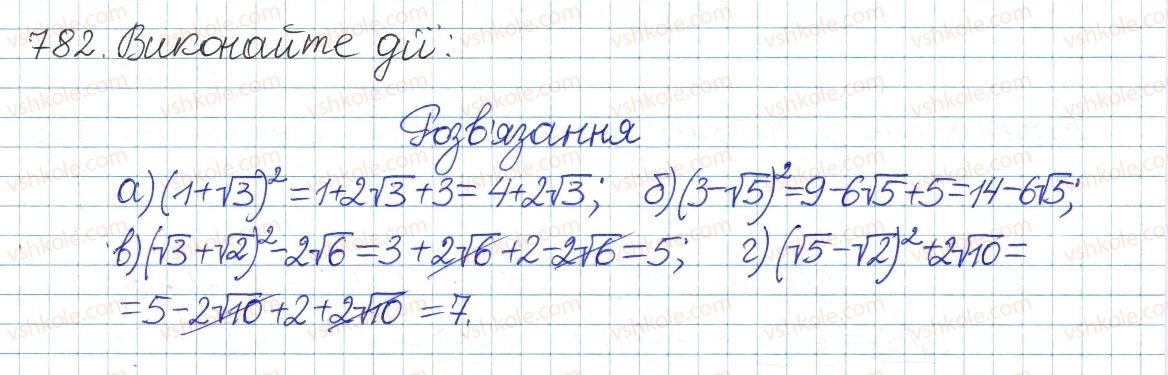 782. Виконайте дії:
Розв'язання
а) (1+√3)² = 1+2√3+3 = 4+2√3; б) (3-√5)² = 9-6√5+5 = 14-6√5;
в) (√3+√2)² - 2√6 = 3+2√6+2-2√6 = 5; г) (√5-√2)² + 2√10 =
= 5-2√10+2+2√10 = 7.